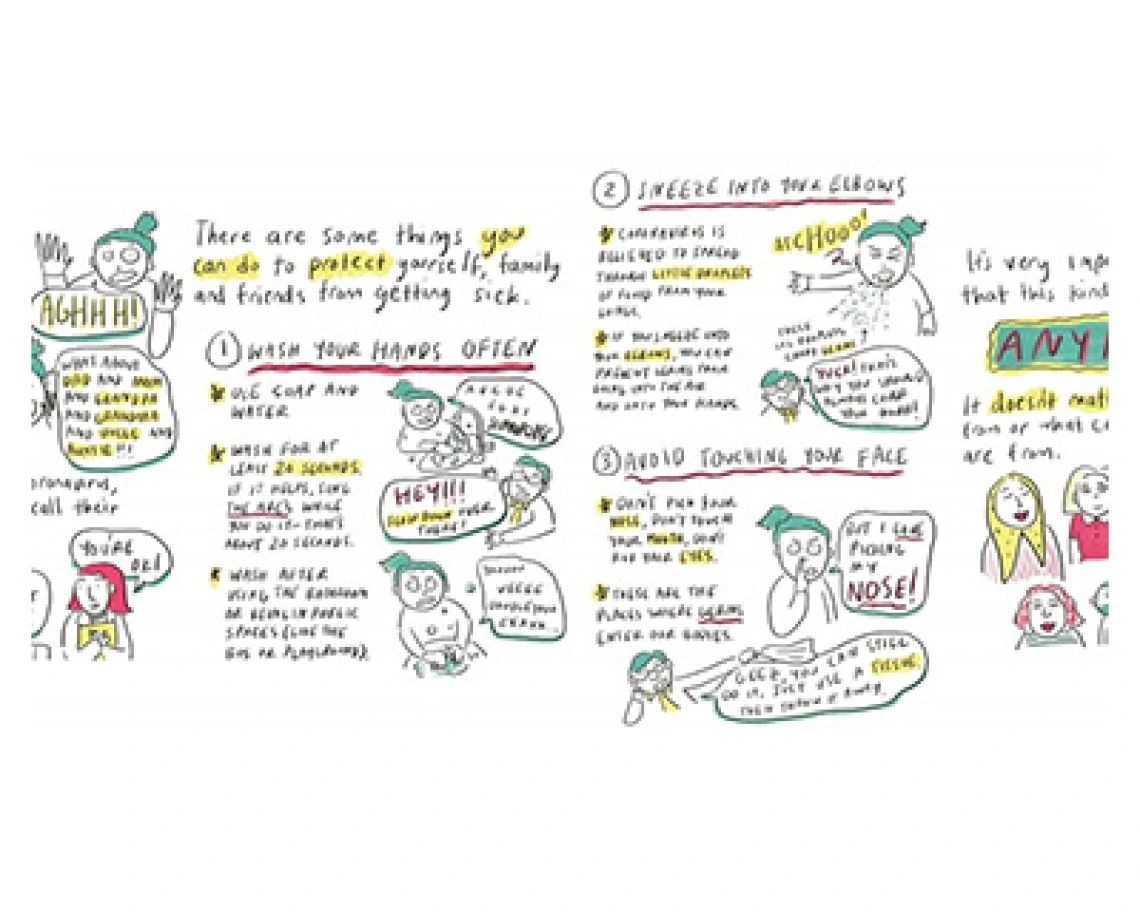 AGHHH!
WHAT ABOUT
DAD AND MOM
AND GRANDPA
AND GRANDMA
AND UNCLE AND
AUNTIE!!!
call their
YOU'RE
There are some things you
can do to protect yourself, family
and friends from getting sick.
1 WASH YOUR HANDS OFTEN
USE SOAP AND
WATER
WASH FOR AT
LEAST 20 SECONDS.
IF IT HELPS, SING
THE ABC'S WHILE
YOU DO IT - THAT'S
ABOUT 20 SECONDS.
WASH AFTER
USING THE BATHROOM
OR BEING IN PUBLIC
SPACES (LIKE THE
BUS OR PLAYGROUND).
HEY!!!
SLOW DOWN OVER
THERE!
2 SNEEZE INTO YOUR ELBOWS
CORONAVIRUS IS
BELIEVED TO SPREAD
THROUGH LITTLE DROPLETS
OF FLUID FROM YOUR
LUNGS.
IF YOU SNEEZE INTO
YOUR ELBOWS, YOU CAN
PREVENT GERMS FROM
GOING INTO THE AIR
AND ONTO YOUR HANDS.
ACHOOO!
YUCK! THAT'S
WHY YOU SHOULD
ALWAYS COVER
YOUR
3 AVOID TOUCHING YOUR FACE
DON'T PICK YOUR
NOSE, DON'T TOUCH
YOUR MOUTH, DON'T
RUB YOUR EYES.
THESE ARE THE
PLACES WHERE GERMS
ENTER OUR BODIES.
BUT I LOVE
PICKING
MY
NOSE!
GEEZ, YOU CAN STILL
DO IT, JUST USE A TISSUE
THEN THROW IT AWAY.
It's very imp
that this kind
ANY
It doesn't matt
from or what co
are from.